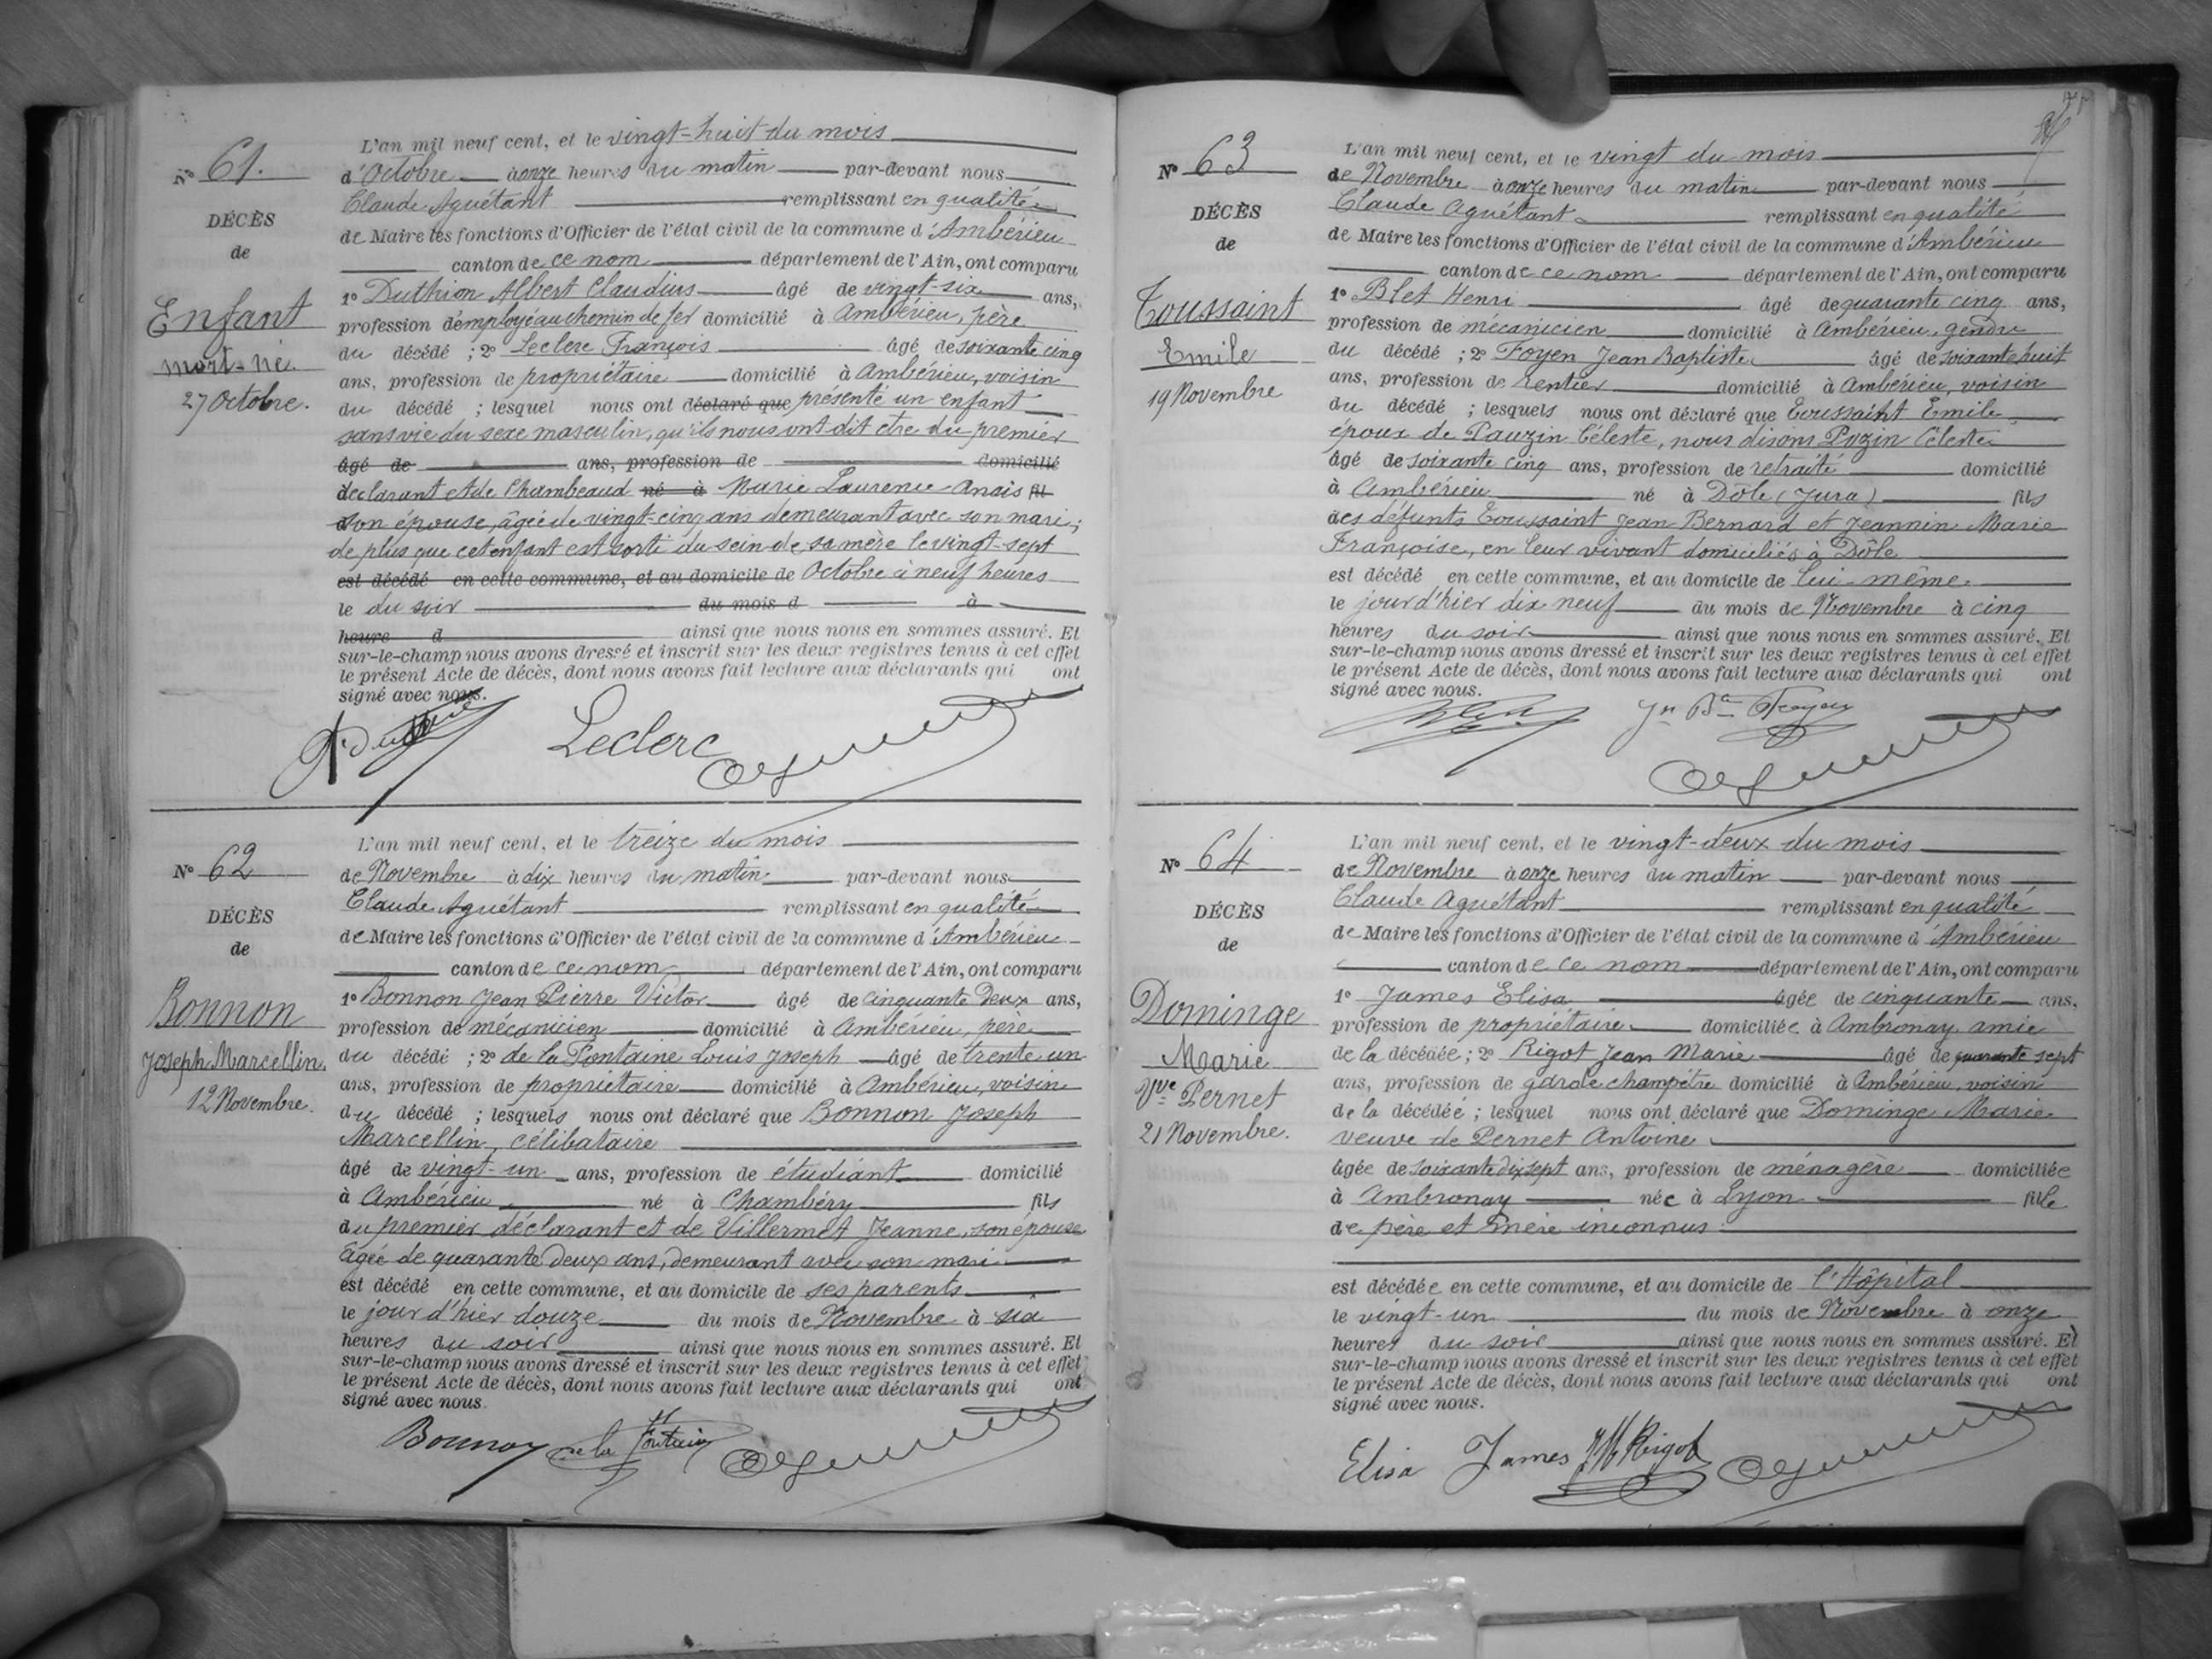 Nº 61.
DÉCÈS
de
Enfant
mort-né.
27 Octobre.
L'an mil neuf cent, et le vingt-huit du mois
d'Octobre à onze heures du matin par-devant nous
Claude Aguétant remplissant en qualité
de Maire les fonctions d'Officier de l'état civil de la commune d'Ambérieu
canton de ce nom département de l'Ain, ont comparu
1º Duthion Albert Claudius âgé de vingt-six ans,
profession d'employé au chemin de fer domicilié à Ambérieu, père
du décédé ; 2º Leclerc François âgé de soixante cinq
ans, profession de propriétaire domicilié à Ambérieu, voisin
du décédé ; lesquel nous ont déclaré que présenté un enfant
sans vie du sexe masculin, qu'ils nous ont dit être du premier
âgé de ans, profession de domicilié
déclarant et de Chambeaud né à Marie Laurence Anaïs fil
son épouse, âgée de vingt-cinq ans demeurant avec son mari ;
de plus que cet enfant est sorti du sein de sa mère le vingt-sept
est décédé en cette commune, et au domicile de Octobre à neuf heures
le du soir du mois d à
heure d ainsi que nous nous en sommes assuré. Et
sur-le-champ nous avons dressé et inscrit sur les deux registres tenus à cet effet
le présent Acte de décès, dont nous avons fait lecture aux déclarants qui ont
signé avec nous.
Leclerc
Nº 62
DÉCÈS
de
Bonnon
Joseph Marcellin.
12 Novembre.
L'an mil neuf cent, et le treize du mois
de Novembre à dix heures du matin par-devant nous
Claude Aguétant remplissant en qualité
de Maire les fonctions d'Officier de l'état civil de la commune d'Ambérieu
canton de ce nom département de l'Ain, ont comparu
1º Bonnon Jean Pierre Victor âgé de cinquante deux ans,
profession de mécanicien domicilié à Ambérieu, père
du décédé ; 2º de la Fontaine Louis Joseph âgé de trente un
ans, profession de propriétaire domicilié à Ambérieu, voisin
du décédé ; lesquels nous ont déclaré que Bonnon Joseph
Marcellin, célibataire
âgé de vingt-un ans, profession de étudiant domicilié
à Ambérieu né à Chambéry fils
du premier déclarant et de Villermet Jeanne, son épouse
âgée de quarante deux ans, demeurant avec son mari
est décédé en cette commune, et au domicile de ses parents
le jour d'hier douze du mois de Novembre à six
heures du soir ainsi que nous nous en sommes assuré. Et
sur-le-champ nous avons dressé et inscrit sur les deux registres tenus à cet effet
le présent Acte de décès, dont nous avons fait lecture aux déclarants qui ont
signé avec nous.
Bonnon de la Fontaine
Nº 63
DÉCÈS
de
Toussaint
Emile
19 Novembre
L'an mil neuf cent, et le vingt du mois
de Novembre à onze heures du matin par-devant nous
Claude Aguétant remplissant en qualité
de Maire les fonctions d'Officier de l'état civil de la commune d'Ambérieu
canton de ce nom département de l'Ain, ont comparu
1º Blet Henri âgé de quarante cinq ans,
profession de mécanicien domicilié à Ambérieu, gendre
du décédé ; 2º Foyen Jean Baptiste âgé de soixante huit
ans, profession de rentier domicilié à Ambérieu, voisin
du décédé ; lesquels nous ont déclaré que Toussaint Emile
époux de Pauzin Céleste, nous disons Puzin Céleste
âgé de soixante cinq ans, profession de retraité domicilié
à Ambérieu né à Dôle (Jura) fils
des défunts Toussaint Jean Bernard et Jeannin Marie
Françoise, en leur vivant domiciliés à Dôle
est décédé en cette commune, et au domicile de lui-même
le jour d'hier dix neuf du mois de Novembre à cinq
heures du soir ainsi que nous nous en sommes assuré. Et
sur-le-champ nous avons dressé et inscrit sur les deux registres tenus à cet effet
le présent Acte de décès, dont nous avons fait lecture aux déclarants qui ont
signé avec nous.
Nº 64
DÉCÈS
de
Dominge
Marie
Vve Pernet
21 Novembre.
L'an mil neuf cent, et le vingt-deux du mois
de Novembre à onze heures du matin par-devant nous
Claude Aguétant remplissant en qualité
de Maire les fonctions d'Officier de l'état civil de la commune d'Ambérieu
canton de ce nom département de l'Ain, ont comparu
1º James Elisa âgée de cinquante ans,
profession de propriétaire domiciliée à Ambronay amie
de la décédée ; 2º Rigot Jean Marie âgé de quarante sept
ans, profession de garde champêtre domicilié à Ambérieu, voisin
de la décédée ; lesquel nous ont déclaré que Dominge Marie
veuve de Pernet Antoine
âgée de soixante dix sept ans, profession de ménagère domiciliée
à Ambronay née à Lyon fille
de père et mère inconnus
est décédée en cette commune, et au domicile de l'Hôpital
le vingt-un du mois de Novembre à onze
heures du soir ainsi que nous nous en sommes assuré. Et
sur-le-champ nous avons dressé et inscrit sur les deux registres tenus à cet effet
le présent Acte de décès, dont nous avons fait lecture aux déclarants qui ont
signé avec nous.
Elisa James JM Rigot